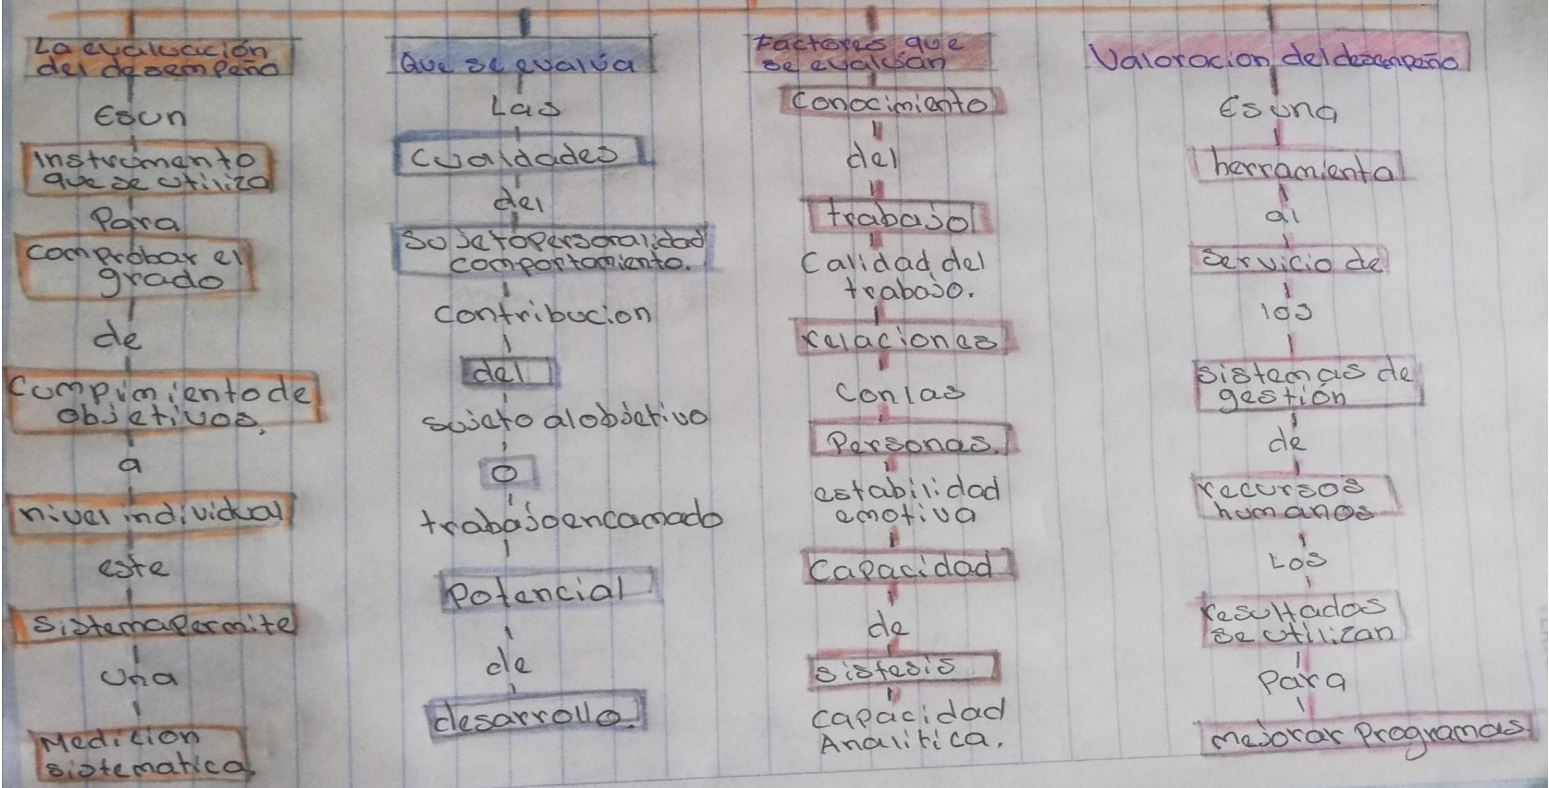 La evaluación
del desempeño
Es un
instrumento
que se utiliza
Para
comprobar el
grado
de
Cumplimiento de
objetivos.
a
nivel individual
este
sistema Permite
una
Medición
sistematica.
Que se evalúa
Las
cualdades
del
sujeto personalidad
comportamiento.
contribucion
del
sujeto al objetivo
o
trabajo encamado
Potencial
de
desarrollo.
Factores que
se evalúan
Conocimiento
del
trabajo
Calidad del
trabajo.
relaciones
con las
Personas.
estabilidad
emotiva
Capacidad
de
sistesis
capacidad
Analitica.
Valoracion del desempeño
Es una
herramienta
al
servicio de
los
sistemas de
gestión
de
recursos
humanos
Los
resultados
se utilizan
Para
mejorar Programas